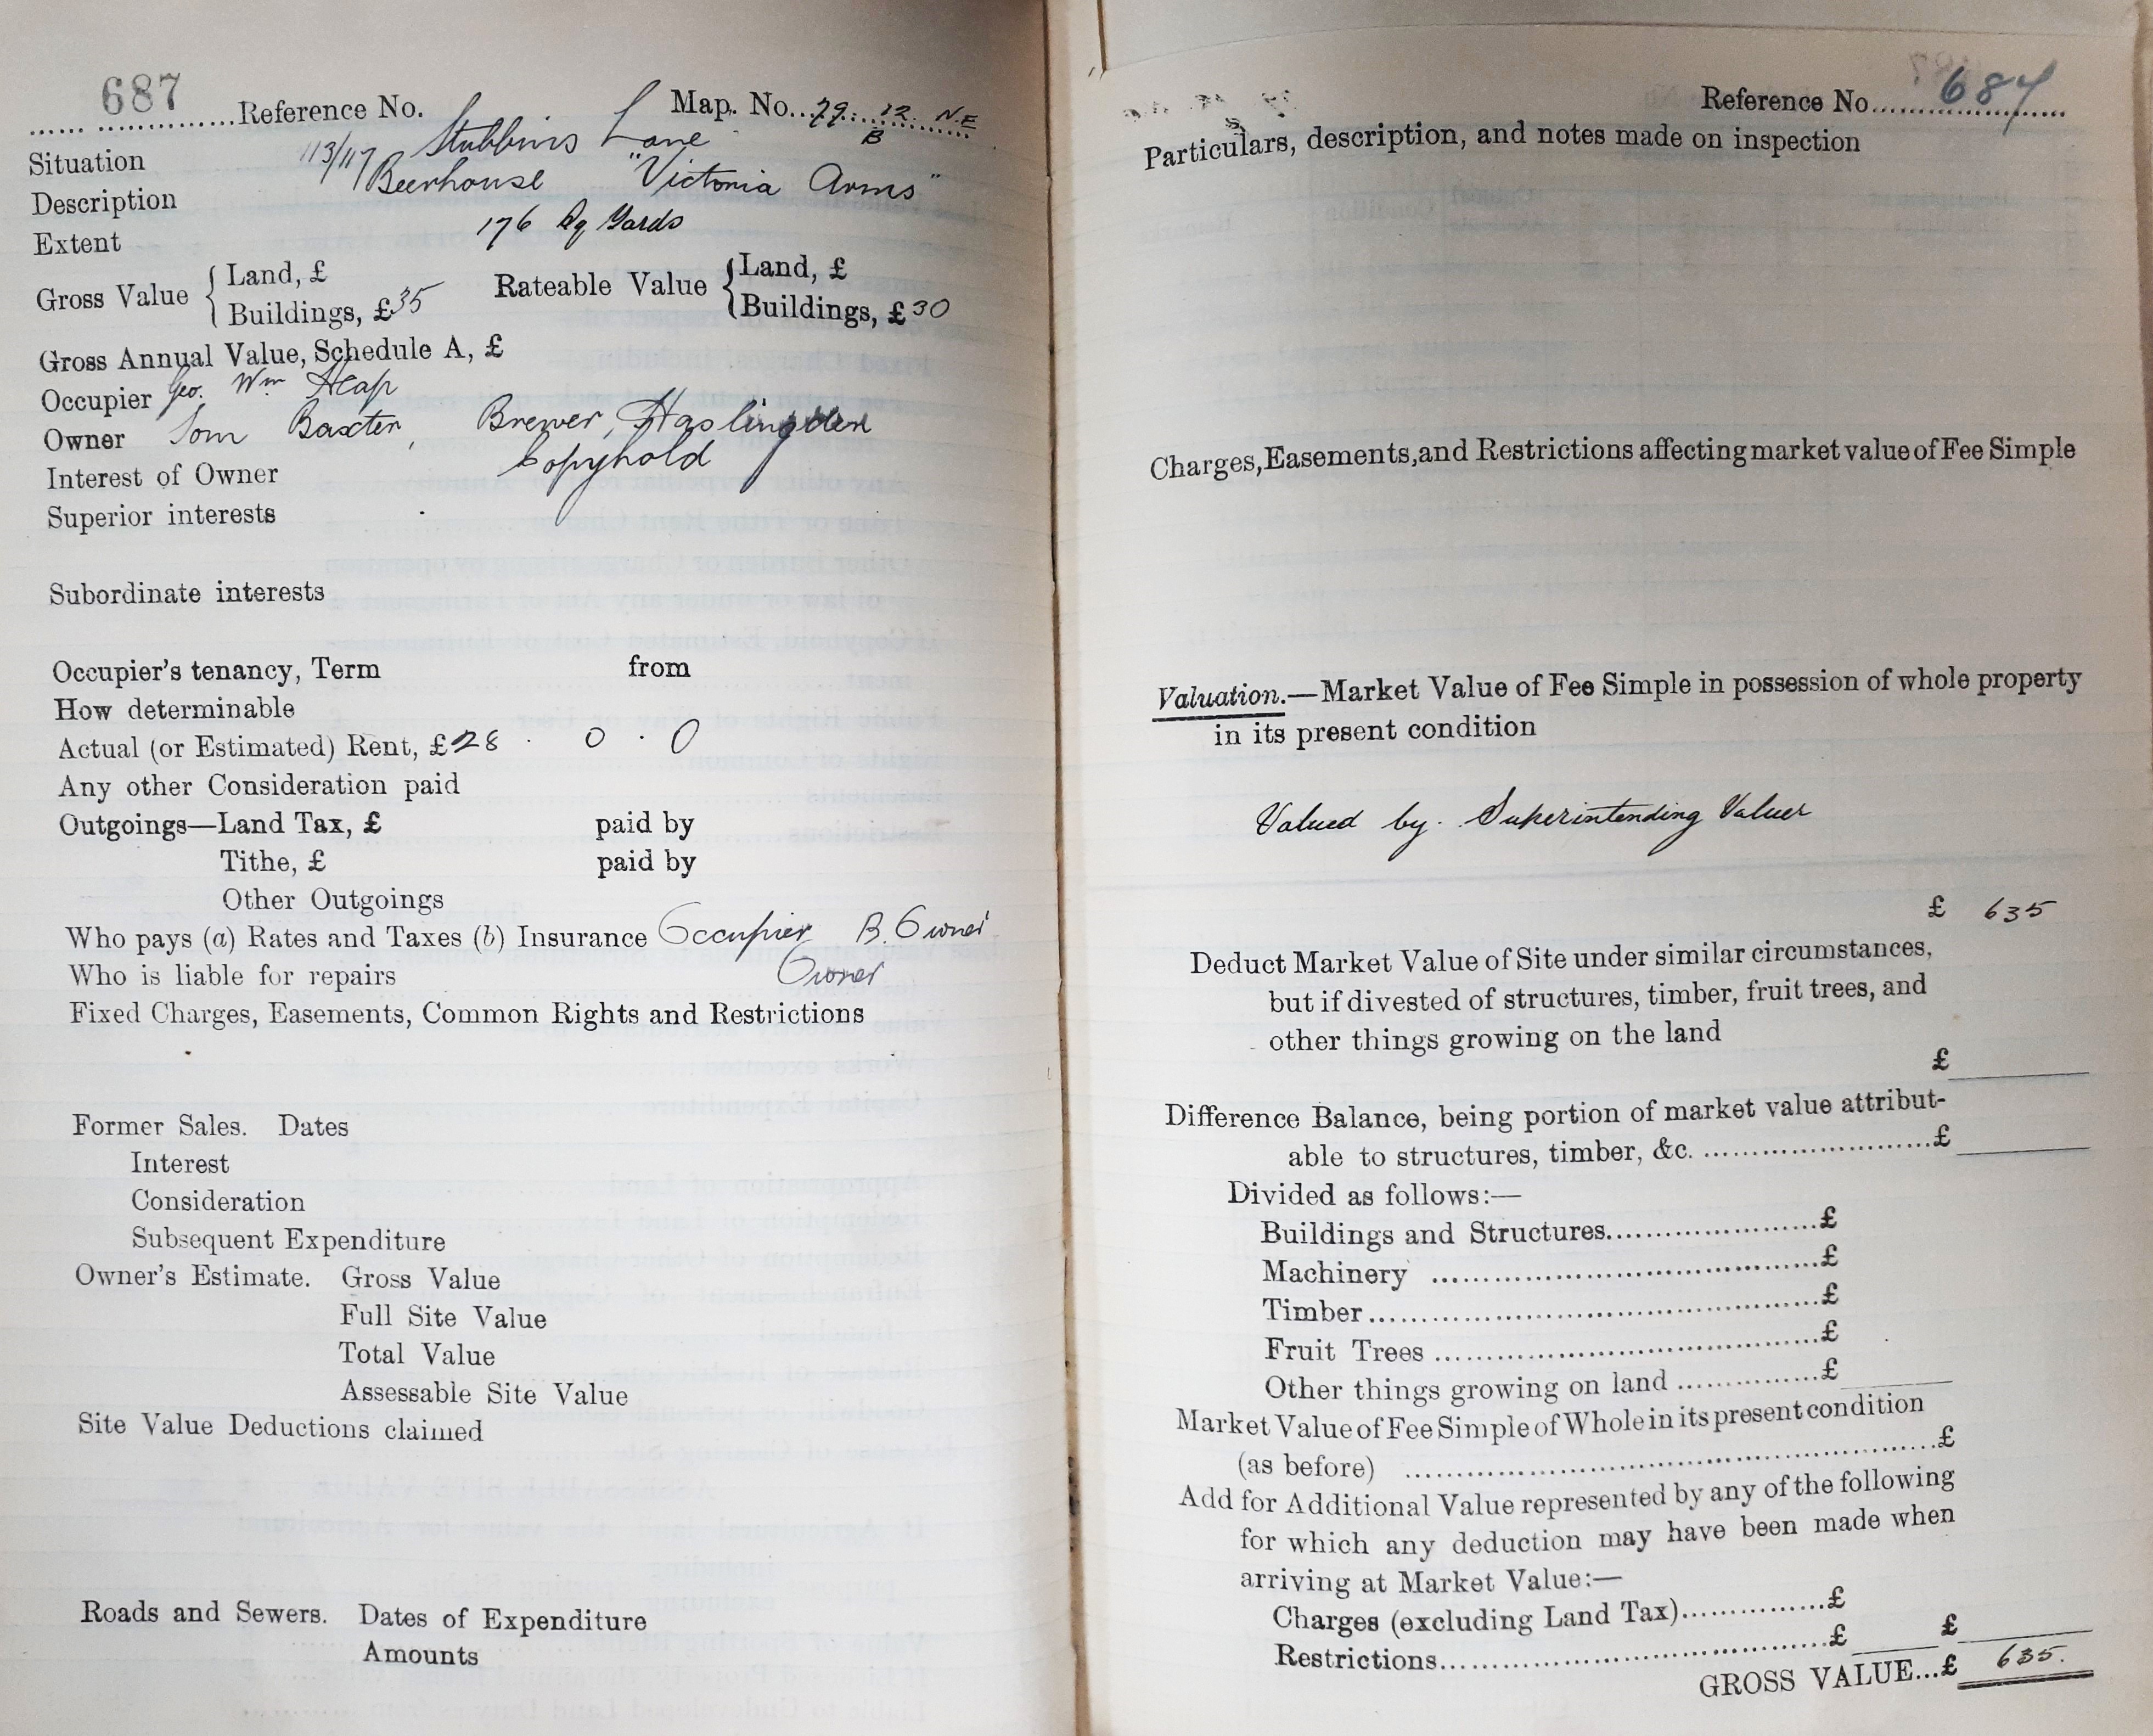 687 Reference No. Map. No. 79. 12. N.E
B
Situation 113/117 Stubbins Lane
Description Beerhouse "Victoria Arms"
Extent 176 Sq Yards
Gross Value { Land, £
Buildings, £35
Rateable Value { Land, £
Buildings, £30
Gross Annual Value, Schedule A, £
Occupier Geo. Wm Heap
Owner Tom Baxter, Brewer, Haslingden
Interest of Owner Copyhold
Superior interests
Subordinate interests
Occupier's tenancy, Term from
How determinable
Actual (or Estimated) Rent, £28 . 0 . 0
Any other Consideration paid
Outgoings—Land Tax, £ paid by
Tithe, £ paid by
Other Outgoings
Who pays (a) Rates and Taxes (b) Insurance Occupier B. Owner
Who is liable for repairs Owner
Fixed Charges, Easements, Common Rights and Restrictions
Former Sales. Dates
Interest
Consideration
Subsequent Expenditure
Owner's Estimate. Gross Value
Full Site Value
Total Value
Assessable Site Value
Site Value Deductions claimed
Roads and Sewers. Dates of Expenditure
Amounts
Reference No. 687
Particulars, description, and notes made on inspection
Charges, Easements, and Restrictions affecting market value of Fee Simple
Valuation.—Market Value of Fee Simple in possession of whole property
in its present condition
Valued by. Superintending Valuer
£ 635
Deduct Market Value of Site under similar circumstances,
but if divested of structures, timber, fruit trees, and
other things growing on the land
£
Difference Balance, being portion of market value attribut-
able to structures, timber, &c. £
Divided as follows:—
Buildings and Structures £
Machinery £
Timber £
Fruit Trees £
Other things growing on land £
Market Value of Fee Simple of Whole in its present condition
(as before) £
Add for Additional Value represented by any of the following
for which any deduction may have been made when
arriving at Market Value:—
Charges (excluding Land Tax) £
Restrictions £ £
GROSS VALUE...£ 635.